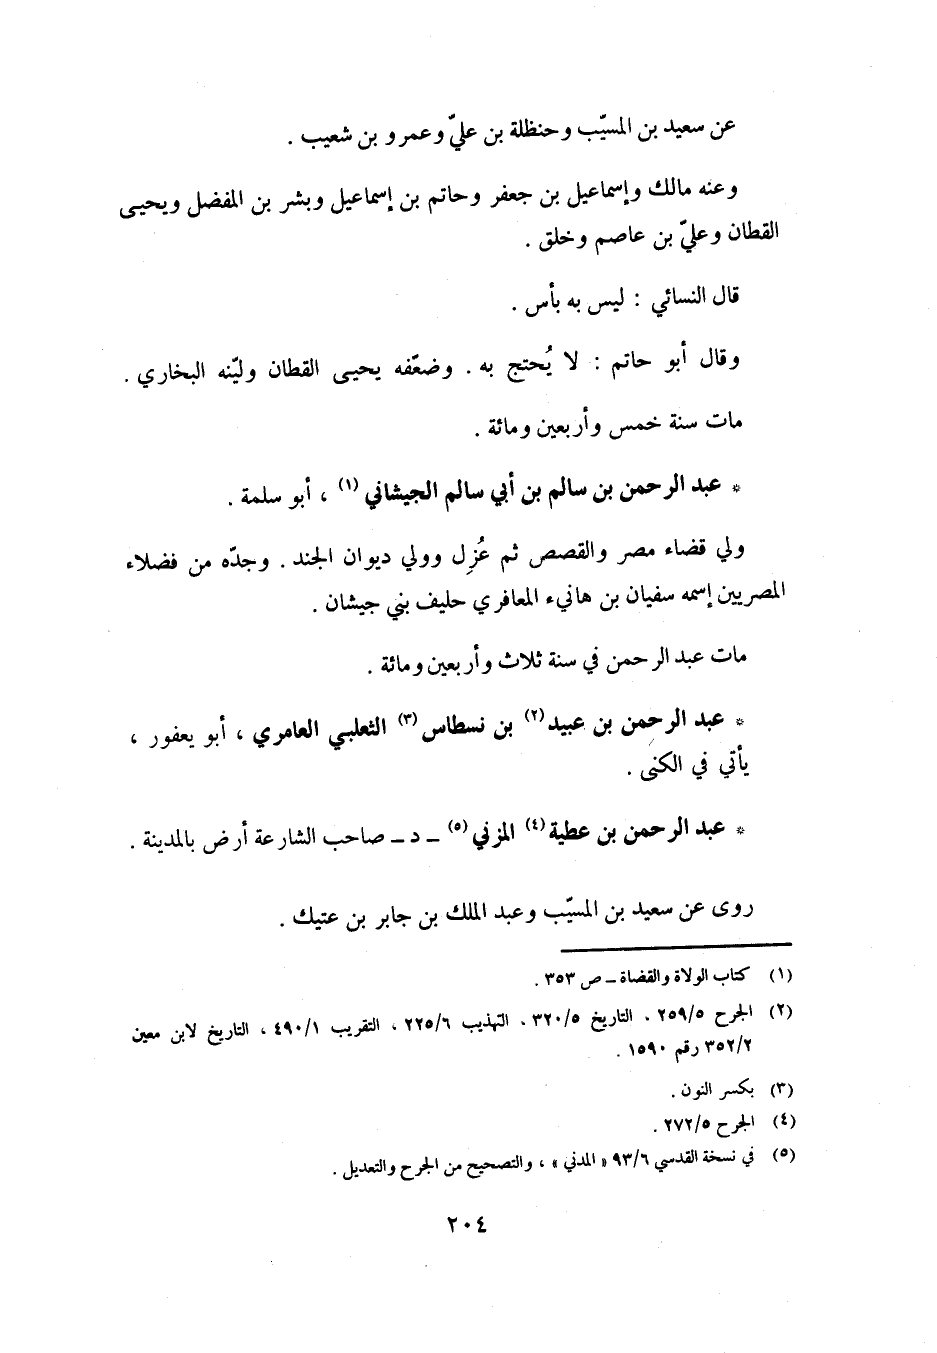 عن سعيد بن المسيّب وحنظلة بن عليّ وعمرو بن شعيب .
وعنه مالك وإسماعيل بن جعفر وحاتم بن إسماعيل وبشر بن المفضل ويحيى
القطان وعليّ بن عاصم وخلق .
قال النسائي : ليس به بأس .
وقال أبو حاتم : لا يُحتج به . وضعّفه يحيى القطان وليّنه البخاري .
مات سنة خمس وأربعين ومائة .
* عبد الرحمن بن سالم بن أبي سالم الجيشاني (١) ، أبو سلمة .
ولي قضاء مصر والقصص ثم عُزِل وولي ديوان الجند . وجدّه من فضلاء
المصريين إسمه سفيان بن هانيء المعافري حليف بني جيشان .
مات عبد الرحمن في سنة ثلاث وأربعين ومائة .
* عبد الرحمن بن عبيد (٢) بن نسطاس (٣) الثعلبي العامري ، أبو يعفور ،
يأتي في الكنى .
* عبد الرحمن بن عطية (٤) المزني (٥) ـ د ـ صاحب الشارعة أرض بالمدينة .
روى عن سعيد بن المسيّب وعبد الملك بن جابر بن عتيك .
(١) كتاب الولاة والقضاة ـ ص ٣٥٣ .
(٢) الجرح ٢٥٩/٥ ، التاريخ ٣٢٠/٥ ، التهذيب ٢٢٥/٦ ، التقريب ٤٩٠/١ ، التاريخ لابن معين
٣٥٢/٢ رقم ١٥٩٠ .
(٣) بكسر النون .
(٤) الجرح ٢٧٢/٥ .
(٥) في نسخة القدسي ٩٣/٦ « المدني » ، والتصحيح من الجرح والتعديل .
٢٠٤